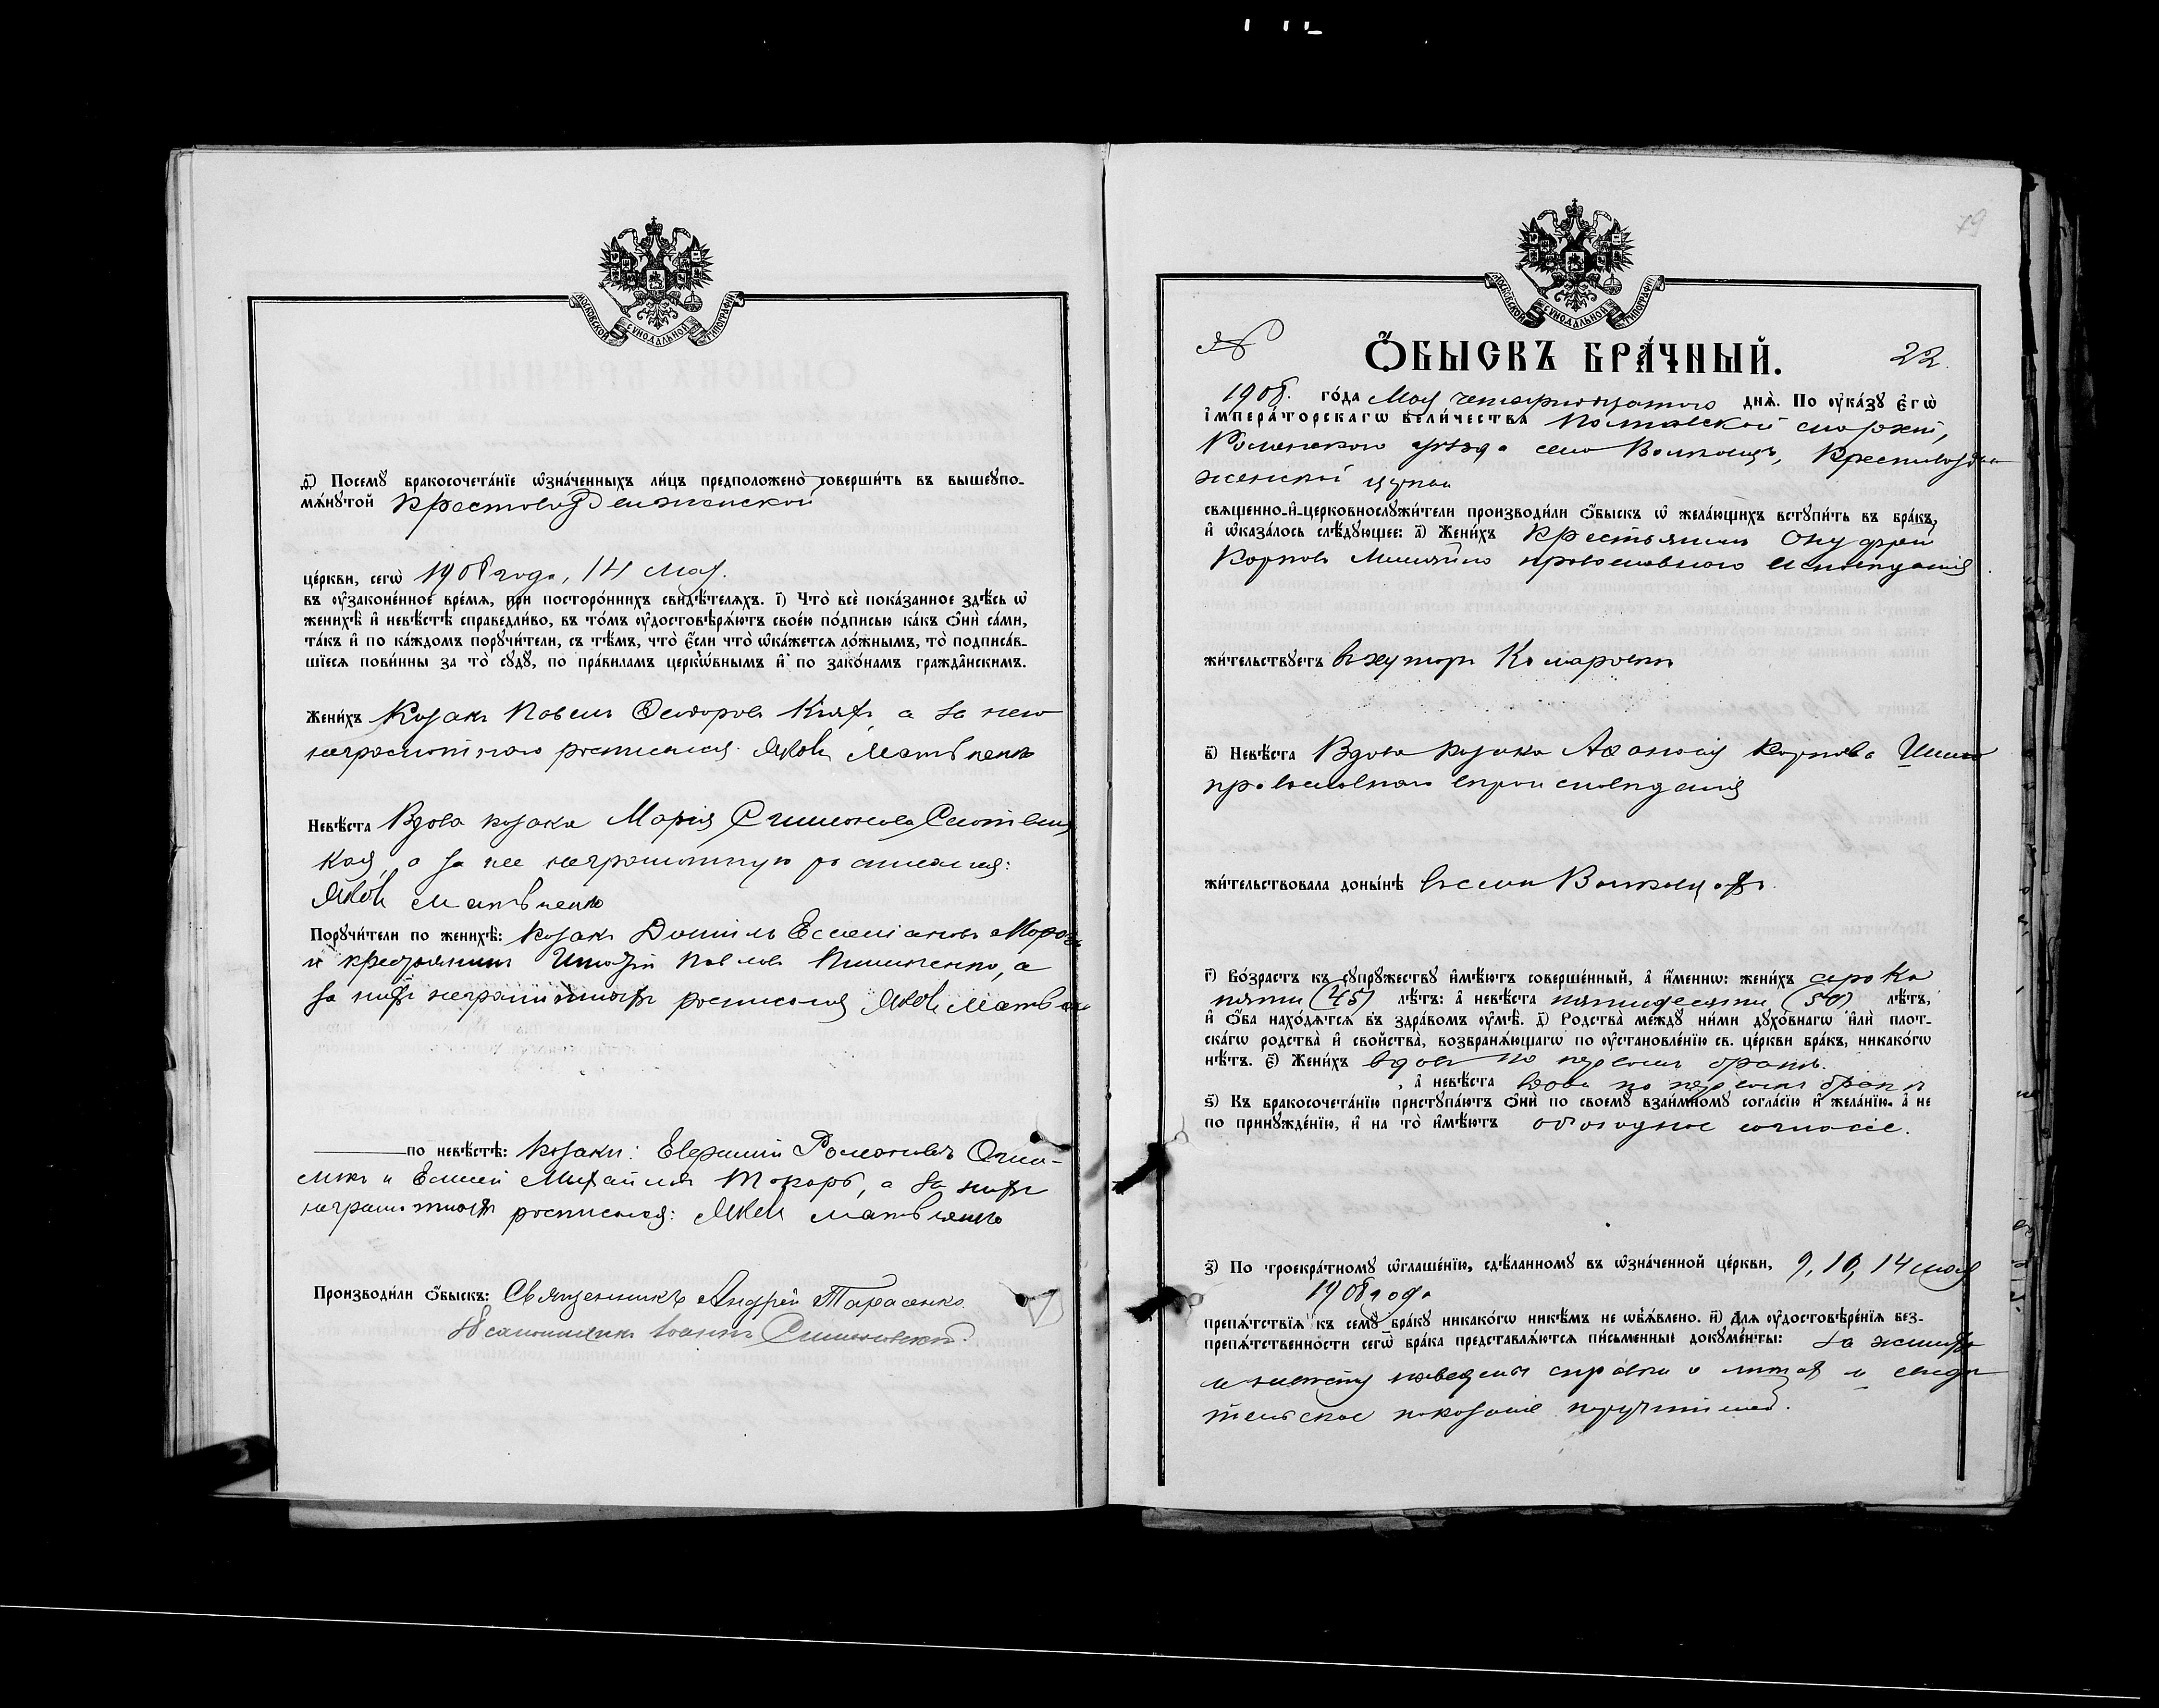 МОСКОВСКОЙ СѴНОДАЛЬНОЙ ТИПОГРАФІИ
д҃і) Посемꙋ̀ бракосочета́нїе ѡ҆зна́ченныхъ ли́цъ предположено̀ соверши́ть въ вышеꙋпо-
мѧ́нꙋтой Крестовоздвиженской
це́ркви, сегѡ̀ 1908 года, 14 мая.
въ ᲂу҆законе́нное вре́мѧ, при посторо́ннихъ свидѣ́телѧхъ. і҃) Что̀ всѐ пока́занное здѣ́сь ѡ҆
женихѣ̀ и҆ невѣ́стѣ справедли́во, въ то́мъ ᲂу҆достовѣрѧ́ютъ свое́ю по́дписью ка́къ ѻ҆нѝ са́ми,
та́къ и҆ по ка́ждомъ порꙋчи́тели, съ тѣ́мъ, что̀ є҆́сли что̀ ѡ҆ка́жетсѧ ло́жнымъ, то̀ подписа́в-
шїесѧ пови́нны за то̀ сꙋдꙋ̀, по пра́виламъ церкѡ́внымъ и҆ по зако́намъ гражда̂нскимъ.
Жени́хъ Козакъ Павелъ Ѳеодоровъ а за него
неграмотнаго росписался Яковъ Матвѣенко
Невѣ́ста Вдова козака Марія Симонова
кая, а за нее неграмотную росписался:
Яковъ Матвѣенко
Порꙋчи́тели по женихѣ̀: Козакъ Даніилъ Мороз
и крестьянинъ Игнатій Павловъ а
за нихъ неграмотныхъ росписался Яковъ Матвѣен
по невѣ́стѣ: Козаки: Романовъ
и Михайловъ Токарь, а за нихъ
неграмотныхъ росписался: Яковъ Матвѣенко
Производи́ли ѻ҆́быскъ: Священникъ Андрей Тарасенко
Псаломщикъ Іоаннъ
79
МОСКОВСКОЙ СѴНОДАЛЬНОЙ ТИПОГРАФІИ
№ Ѻ҆́БЫСКЪ БРА́ЧНЫЙ. 22.
1908. го́да Мая четырнадцатаго днѧ̀. По ᲂу҆ка́зꙋ є҆гѡ̀
і҆мпера́торскагѡ вели́чества Полтавской епархіи,
Роменскаго уѣзда села Крестовоздви
женской церкви
свѧщенно-и҆-церковнослꙋжи́тели производи́ли ѻ҆́быскъ ѡ҆ жела́ющихъ встꙋпи́ть въ бра́къ,
и҆ ѡ҆каза́лось слѣ́дꙋющее: а҃) Жени́хъ Крестьянинъ Онуфрій
Карповъ православнаго исповѣданія
жи́тельствꙋетъ въ хуторѣ
в҃) Невѣ́ста Вдова козака Аѳанасія Карпова
православнаго вѣроисповѣданія
жи́тельствовала доны́нѣ въ селѣ
г҃) Во́зрастъ къ сꙋпрꙋ́жествꙋ и҆мѣ́ютъ соверше́нный, а҆ и҆́меннѡ: жени́хъ сорока
пяти (45) лѣ́тъ: а҆ невѣ́ста пятидесяти (50) лѣ́тъ,
и҆ ѻ҆́ба нахо́дѧтсѧ въ здра́вомъ ᲂу҆мѣ̀. д҃) Родства̀ ме́ждꙋ ни́ми дꙋхо́внагѡ и҆лѝ плот-
ска́гѡ родства̀ и҆ свойства̀, возбранѧ́ющагѡ по ᲂу҆становле́нїю св. це́ркви бра́къ, никако́гѡ
нѣ́тъ. є҃) Жени́хъ вдовъ по первомъ бракѣ.
, а҆ невѣ́ста вдова по первомъ бракѣ
ѕ҃) Къ бракосочета́нїю пристꙋпа́ютъ ѻ҆нѝ по своемꙋ̀ взаи́мномꙋ согла́сїю и҆ жела́нїю, а҆ не
по принꙋжде́нїю, и҆ на то̀ и҆мѣ́ютъ обоюдное согласіе.
з҃) По троекра́тномꙋ ѡ҆глаше́нїю, сдѣ́ланномꙋ въ ѡ҆зна́ченной це́ркви, 9, 10, 14 мая
1908 года
препѧ́тствїѧ къ семꙋ̀ бра́кꙋ никако́гѡ никѣ́мъ не ѡ҆б̾ѧ́влено. и҃) Длѧ ᲂу҆достовѣре́нїѧ без-
препѧ́тственности сегѡ̀ бра́ка представлѧ́ютсѧ пи́сьменные докꙋме́нты: за жениха
и невѣсту наведены справки о лѣтахъ и свидѣ
тельское показаніе поручителей.